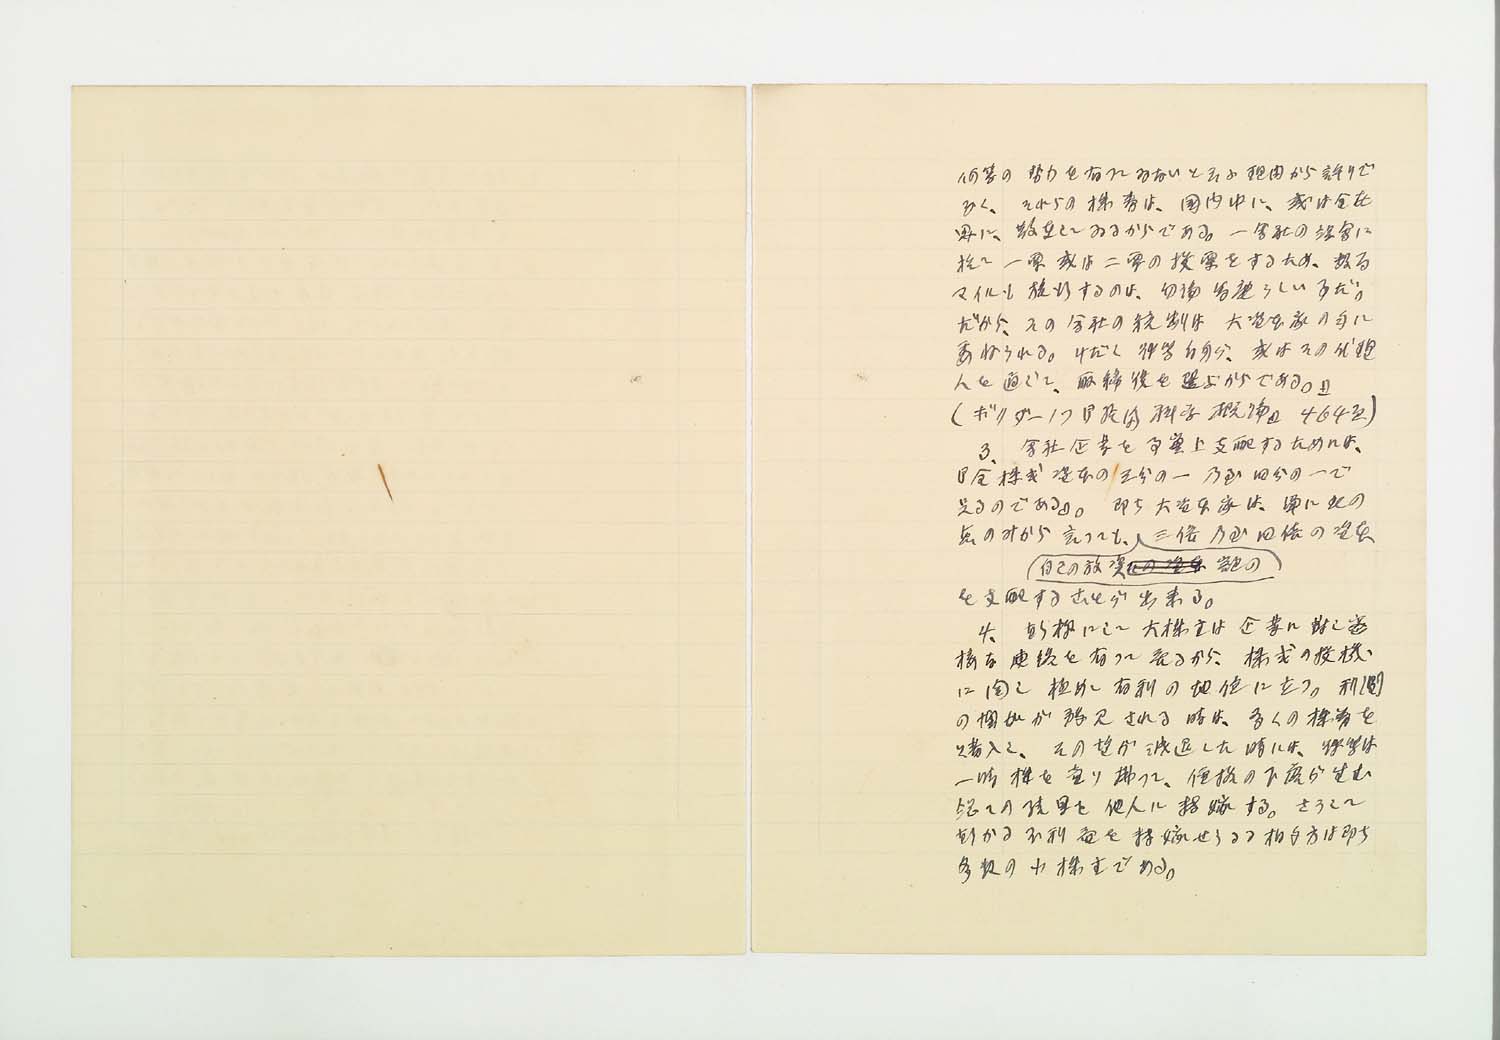 何等の勢力を有つてゐないと云ふ理由から許りで
なく、それらの株券は、国内中に、或は全世
界に、散在してゐるからである。一会社の総会に
於て一票或は二票の投票をするため、数百
マイルも旅行するのは、勿論馬鹿らしい事だ。
だから、その会社の統制は大資本家の手に
委ねられる。けだし彼等自身が、或はその代理
人を通じて、取締役を選ぶからである。」
(ボグダーノフ『経済科学概論』464頁)
3、会社企業を事実上支配するためには、
『全株式資本の三分の一乃至四分の一で
足るのである』。即ち大資本家は、単に此の
点のみから言つても、三倍乃至四倍の資本
自己の放資 額の
を支配することが出来る。
4、斯様にして大株主は企業に対し密
接な連絡を有つて居るから、株式の投機
に関し極めて有利の地位に立つ。利潤
の増加が予見される時は、多くの株券を
購入し、その望が減退した時には、彼等は
一時株を売り拂つて、価格の下落が生む
総ての結果を他人に転嫁する。さうして
斯かる不利益を転嫁せらるる相手方は即ち
多数の小株主である。